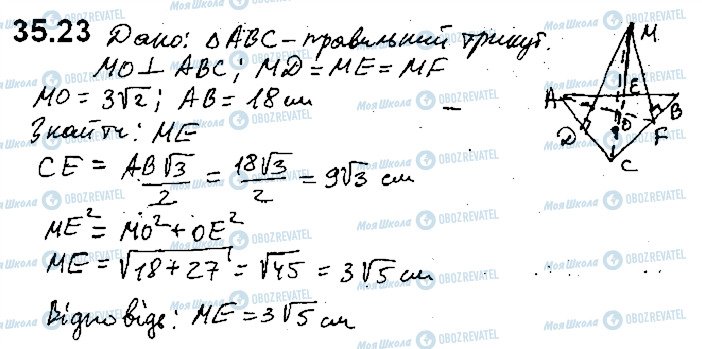 35.23 Дано: △ABC - правильний трикут.
MO ⊥ ABC; MD = ME = MF
MO = 3√2; AB = 18 см
Знайти: ME
CE = AB√3/2 = 18√3/2 = 9√3 см
ME² = MO² + OE²
ME = √18 + 27 = √45 = 3√5 см
Відповідь: ME = 3√5 см
M
A E B
D O F
C
Моя Школа OBOZREVATEL